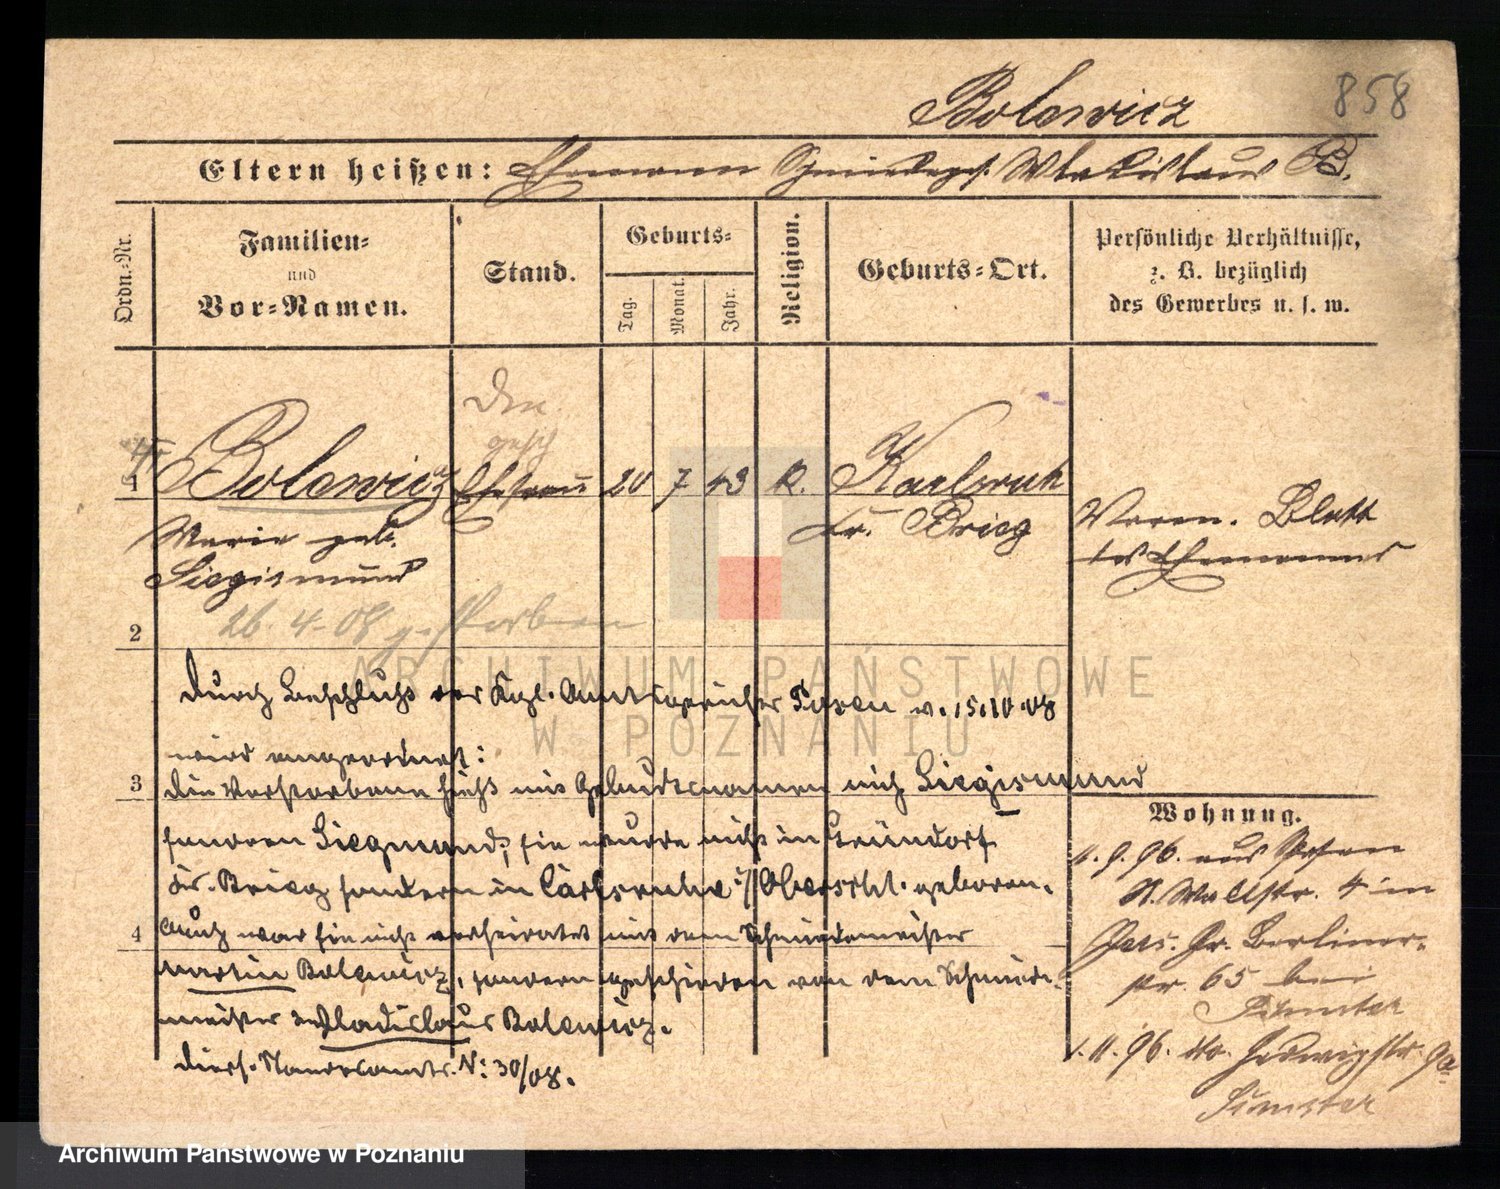 858
Bolewicz
Eltern heißen: Ehemann Schmiedeges. Wladislaus B.
Ordn.-Nr.
Familien-
und
Vor-Namen.
Stand.
Geburts-
Tag.
Monat.
Jahr.
Religion.
Geburts-Ort.
Persönliche Verhältnisse,
z. B. bezüglich
des Gewerbes u. s. w.
gesch
1 Bolewicz Ehefrau 20 7 43 K. Karlsruh
Marie geb. Kr. Brieg
Siegismund
Verm. Blatt
des Ehemannes
2 26.4.08 gestorben
Durch Beschluß des Kgl. Amtsgerichts Posen v. 15.10.08
wird angeordnet:
3 die Verstorbene hieß mit Geburtsnamen nich Siegismund
sondern Siegmund, sie wurde nicht in Gründorf
Kr. Brieg sondern in Carlsruhe O/Schl. geboren.
4 Auch war sie nicht verheiratet mit dem Schmiedemeister
Martin Bolewicz, sondern geschieden von dem Schmiede-
meister Wladislaus Bolewicz.
Diess. Standesamts. N: 30/08.
Wohnung.
9.96. aus Posen
St. Wallstr. 4 in
Jers. Gr. Berliner-
str. 65 bei
11.96. do. Hedwigstr. 9a
ARCHIWUM PAŃSTWOWE
W POZNANIU
Archiwum Państwowe w Poznaniu